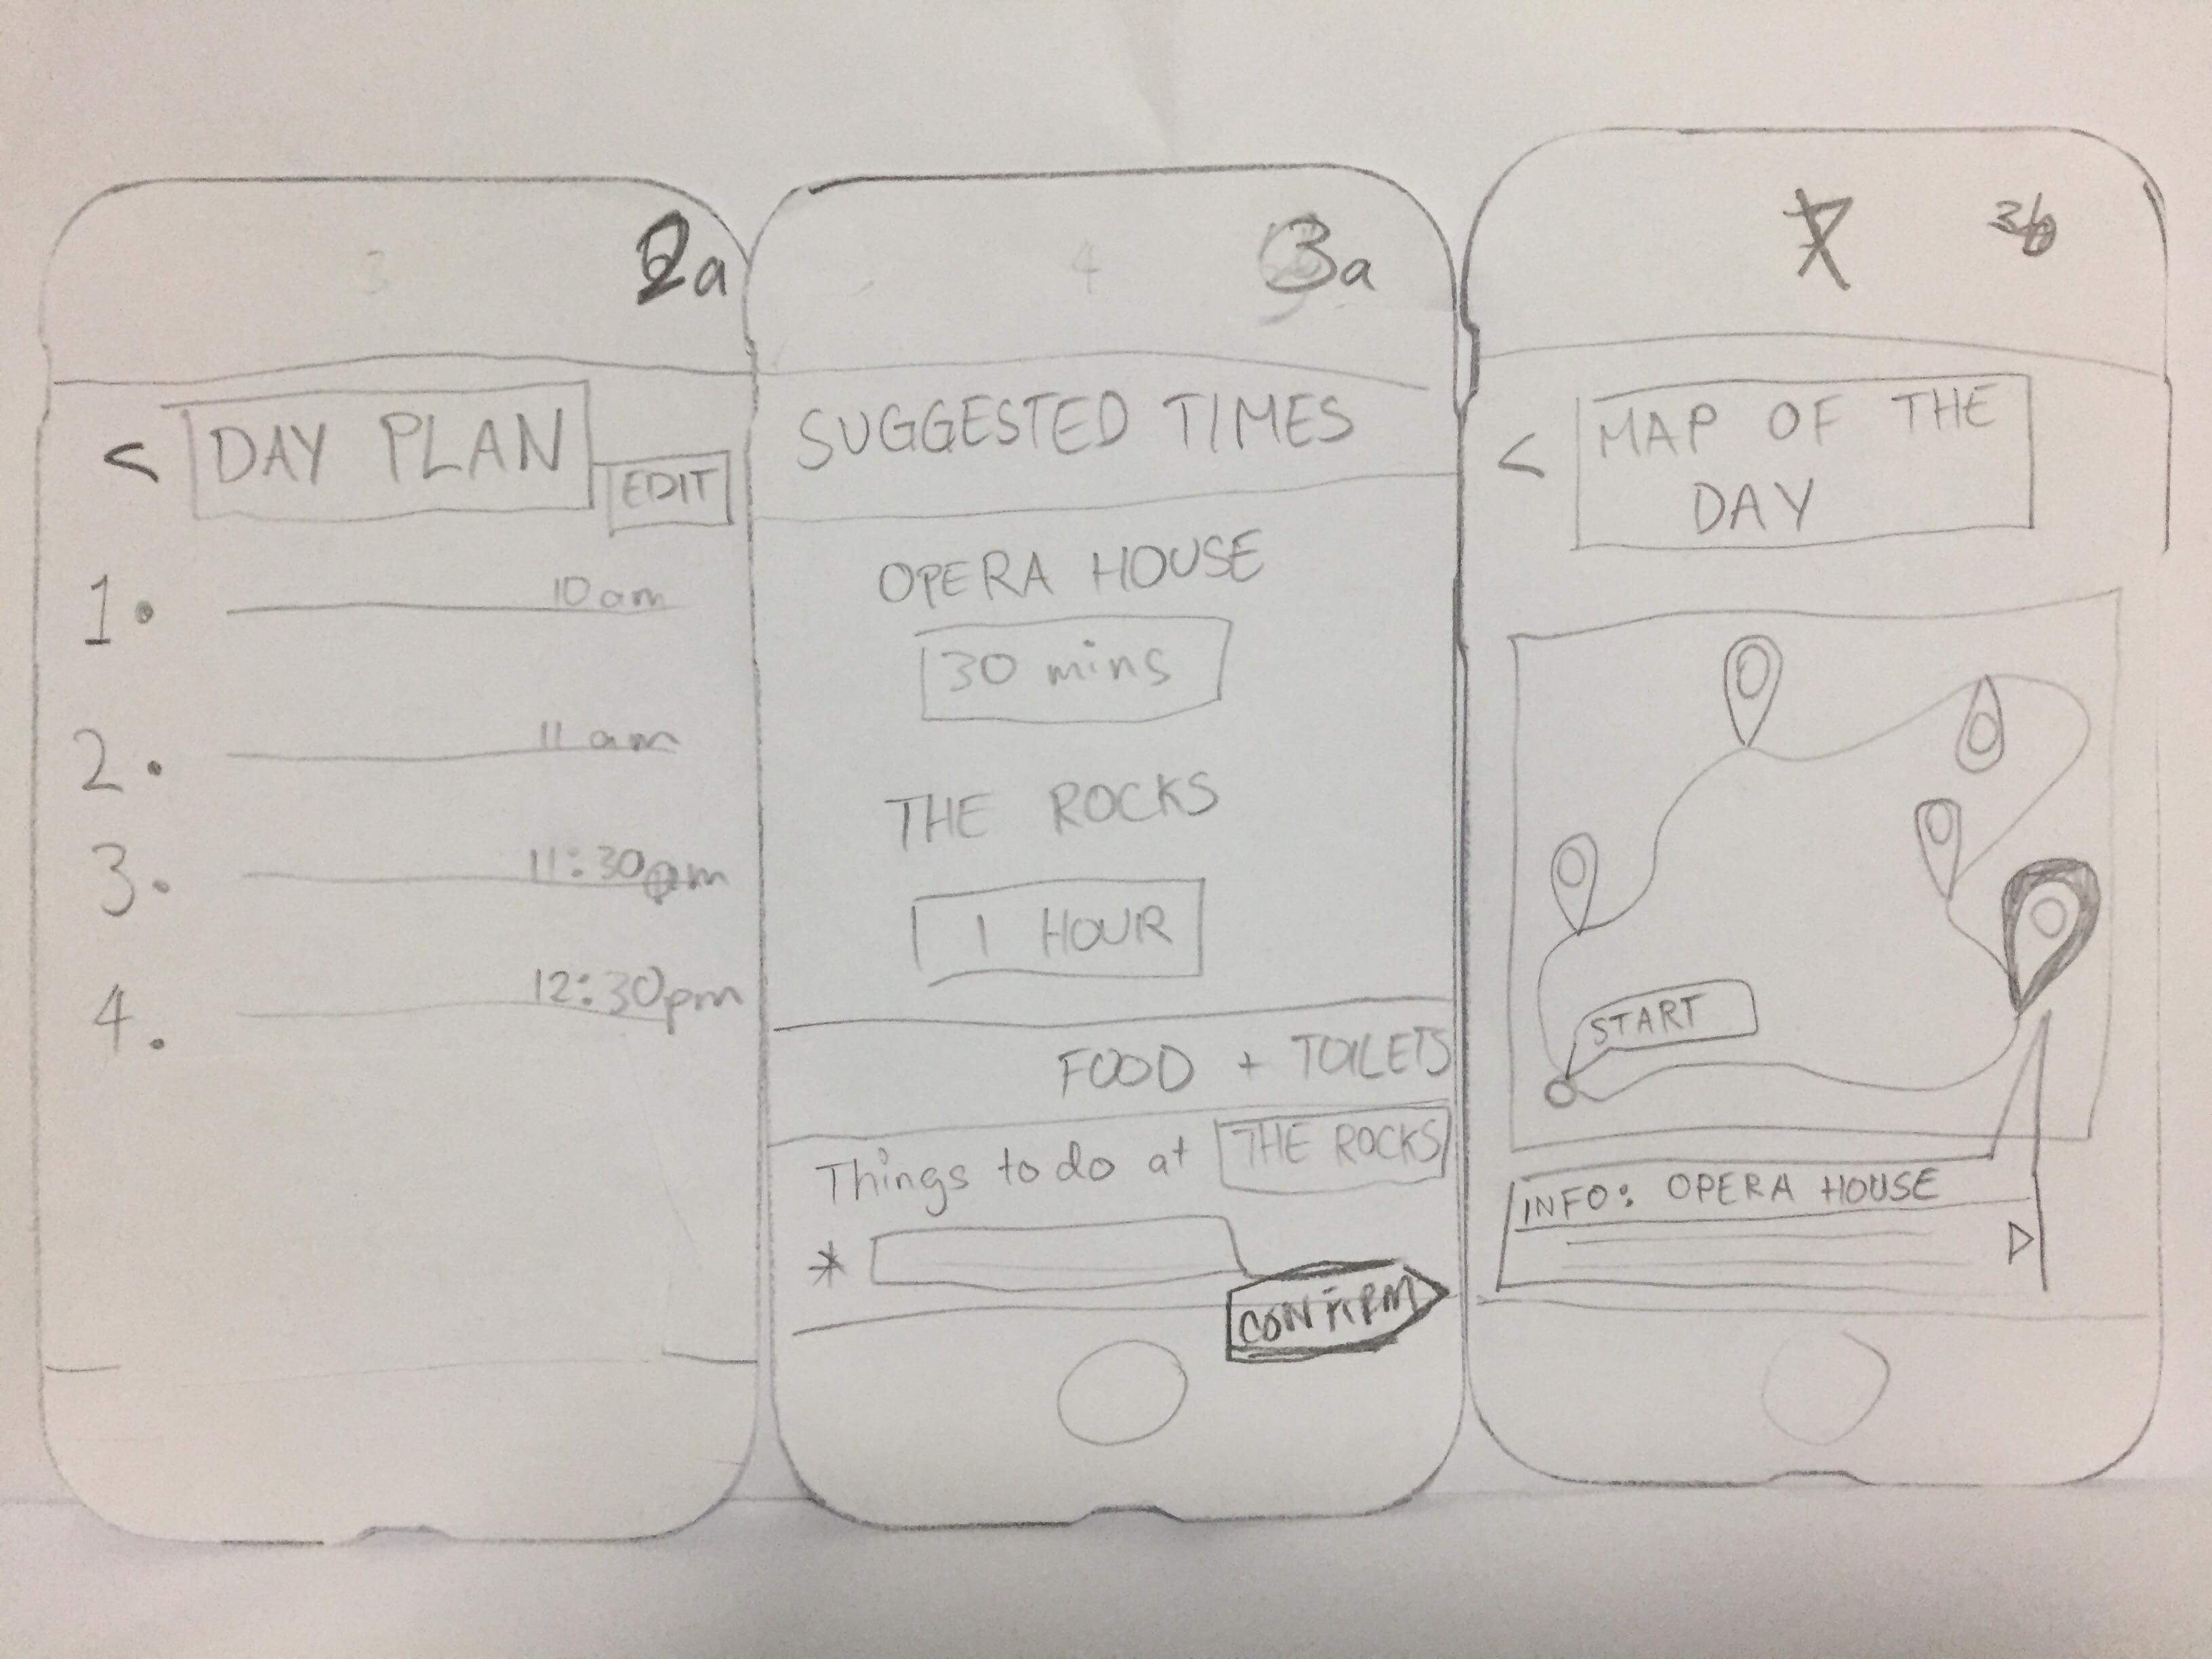 3
2a
< DAY PLAN
EDIT
1. 10am
2. 11am
3. 11:30am
4. 12:30pm
4
3a
SUGGESTED TIMES
OPERA HOUSE
30 mins
THE ROCKS
1 HOUR
FOOD + TOILETS
Things to do at THE ROCKS
*
CONFIRM
3b
< MAP OF THE
DAY
START
INFO: OPERA HOUSE